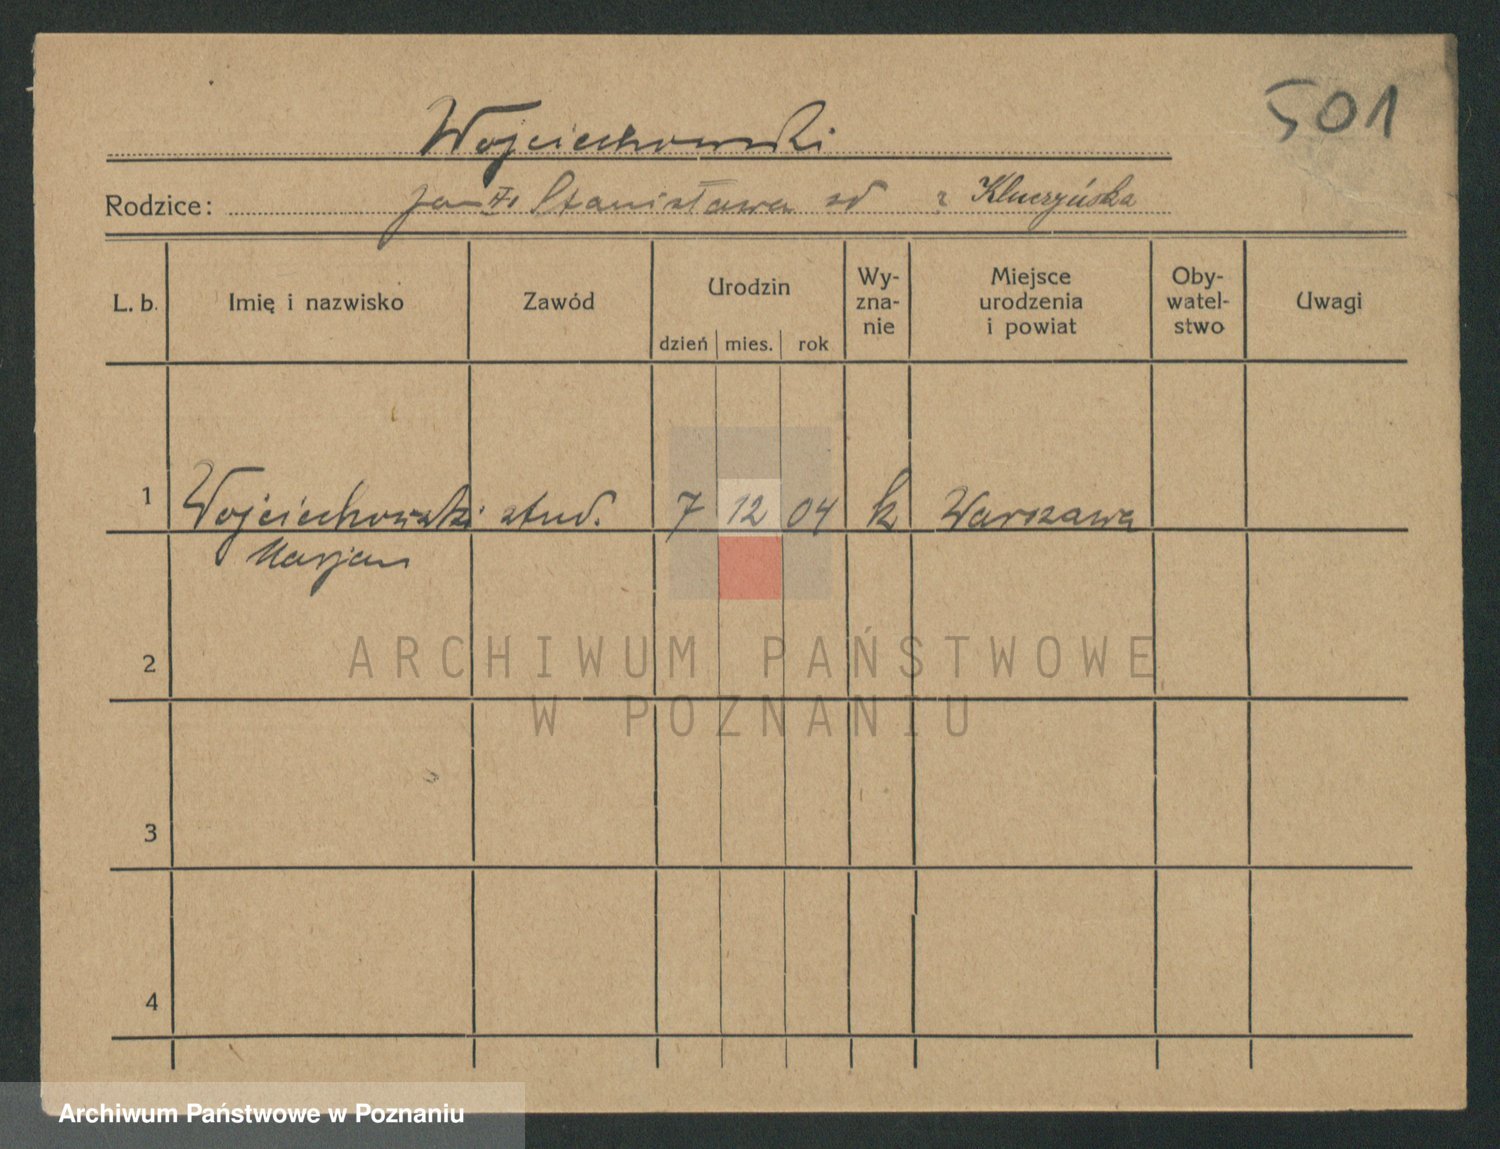 501
Wojciechowski
Rodzice: Stanisława z Kluczyńska
L. b. Imię i nazwisko Zawód Urodzin Wy-zna-nie Miejsce urodzenia i powiat Oby-watel-stwo Uwagi
dzień mies. rok
1 Wojciechowski stud. 7 12 04 k Warszawa
Marjan
2
ARCHIWUM PAŃSTWOWE
W POZNANIU
3
4
Archiwum Państwowe w Poznaniu